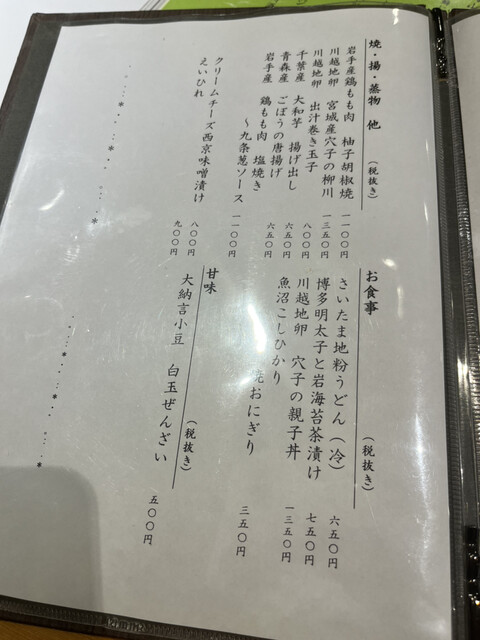 焼・揚・蒸物 他 （税抜き）
岩手産鶏もも肉 柚子胡椒焼 一一〇〇円
川越地卵 宮城産穴子の柳川 一三五〇円
川越地卵 出汁巻き玉子 八〇〇円
千葉産 大和芋 揚げ出し 六五〇円
青森産 ごぼうの唐揚げ 六五〇円
岩手産 鶏もも肉 塩焼き
～九条葱ソース 一一〇〇円
クリームチーズ西京味噌漬け 八〇〇円
えいひれ 九〇〇円
お食事 （税抜き）
さいたま地粉うどん（冷） 六五〇円
博多明太子と岩海苔茶漬け 七五〇円
川越地卵 穴子の親子丼 一三五〇円
魚沼こしひかり
焼おにぎり 三五〇円
甘味 （税抜き）
大納言小豆 白玉ぜんざい 五〇〇円